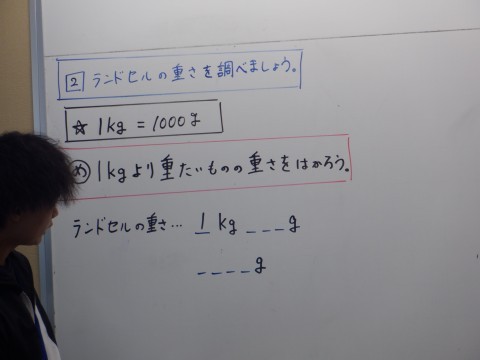 2 ランドセルの重さを調べましょう。
☆ 1kg = 1000g
め 1kgより重たいものの重さをはかろう。
ランドセルの重さ… 1 kg _ _ _ g
_ _ _ _ g